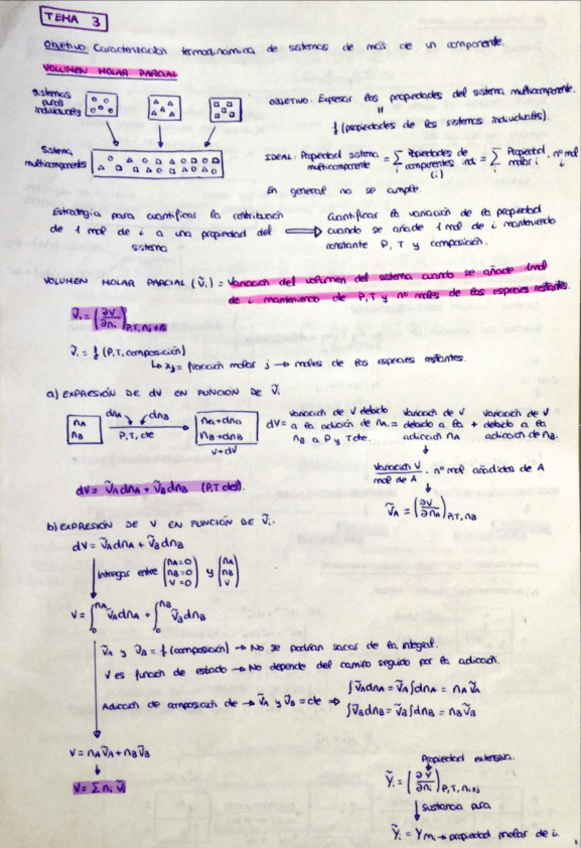 TEMA 3
Objetivo: Caracterización termodinámica de sistemas de más de un componente.
VOLUMEN MOLAR PARCIAL
Sistemas puros individuales
OBJETIVO: Expresar las propiedades del sistema multicomponente.
||
f (propiedades de los sistemas individuales).
Sistema multicomponentes
IDEAL: Propiedad sistema multicomponente = Σ Propiedades de componentes ind. (i) = Σ Propiedad molar i · nº mol i
En general no se cumple.
Estrategia para cuantificar la contribución de 1 mol de i a una propiedad del sistema ⟹ Cuantificar la variación de la propiedad cuando se añade 1 mol de i manteniendo constante P, T y composición.
VOLUMEN MOLAR PARCIAL (Ṽi) = Variación del volumen del sistema cuando se añade 1 mol
de i manteniendo cte P,T y nº moles de las especies restantes.
Ṽi = (∂V/∂ni)P,T,nj≠ni
Ṽi = f (P,T, composición)
↳ xj = fracción molar j → moles de las especies restantes.
a) EXPRESIÓN DE dV EN FUNCIÓN DE Ṽi
nA nB
dnA dnB
P,T, cte
nA+dnA
nB+dnB
V+dV
dV = Variación de V debido a la adición de nA = Variación de V debido a la adición nA + Variación de V debido a la adición de nB.
nB a P y T cte.
Variación V / mol de A · nº mol añadidos de A
ṼA = (∂V/∂nA)P,T,nB
dV = ṼA dnA + ṼB dnB (P,T ctes).
b) EXPRESIÓN DE V EN FUNCIÓN DE Ṽi.
dV = ṼA dnA + ṼB dnB
Integras entre (nA=0 nB=0 V=0) y (nA nB V)
V = ∫₀^nA ṼA dnA + ∫₀^nB ṼB dnB
ṼA y ṼB = f (composición) → No se podrían sacar de la integral.
V es función de estado → No depende del camino seguido por la adición.
Adición de composición cte → ṼA y ṼB = cte ⇒ ∫ṼA dnA = ṼA ∫dnA = nA ṼA
∫ṼB dnB = ṼB ∫dnB = nB ṼB
V = nA ṼA + nB ṼB
V = Σ ni Ṽi
Propiedad extensiva.
Ỹi = (∂Y/∂ni)P,T,nj≠j
Sustancia pura
Ỹi = Ymi → propiedad molar de i.